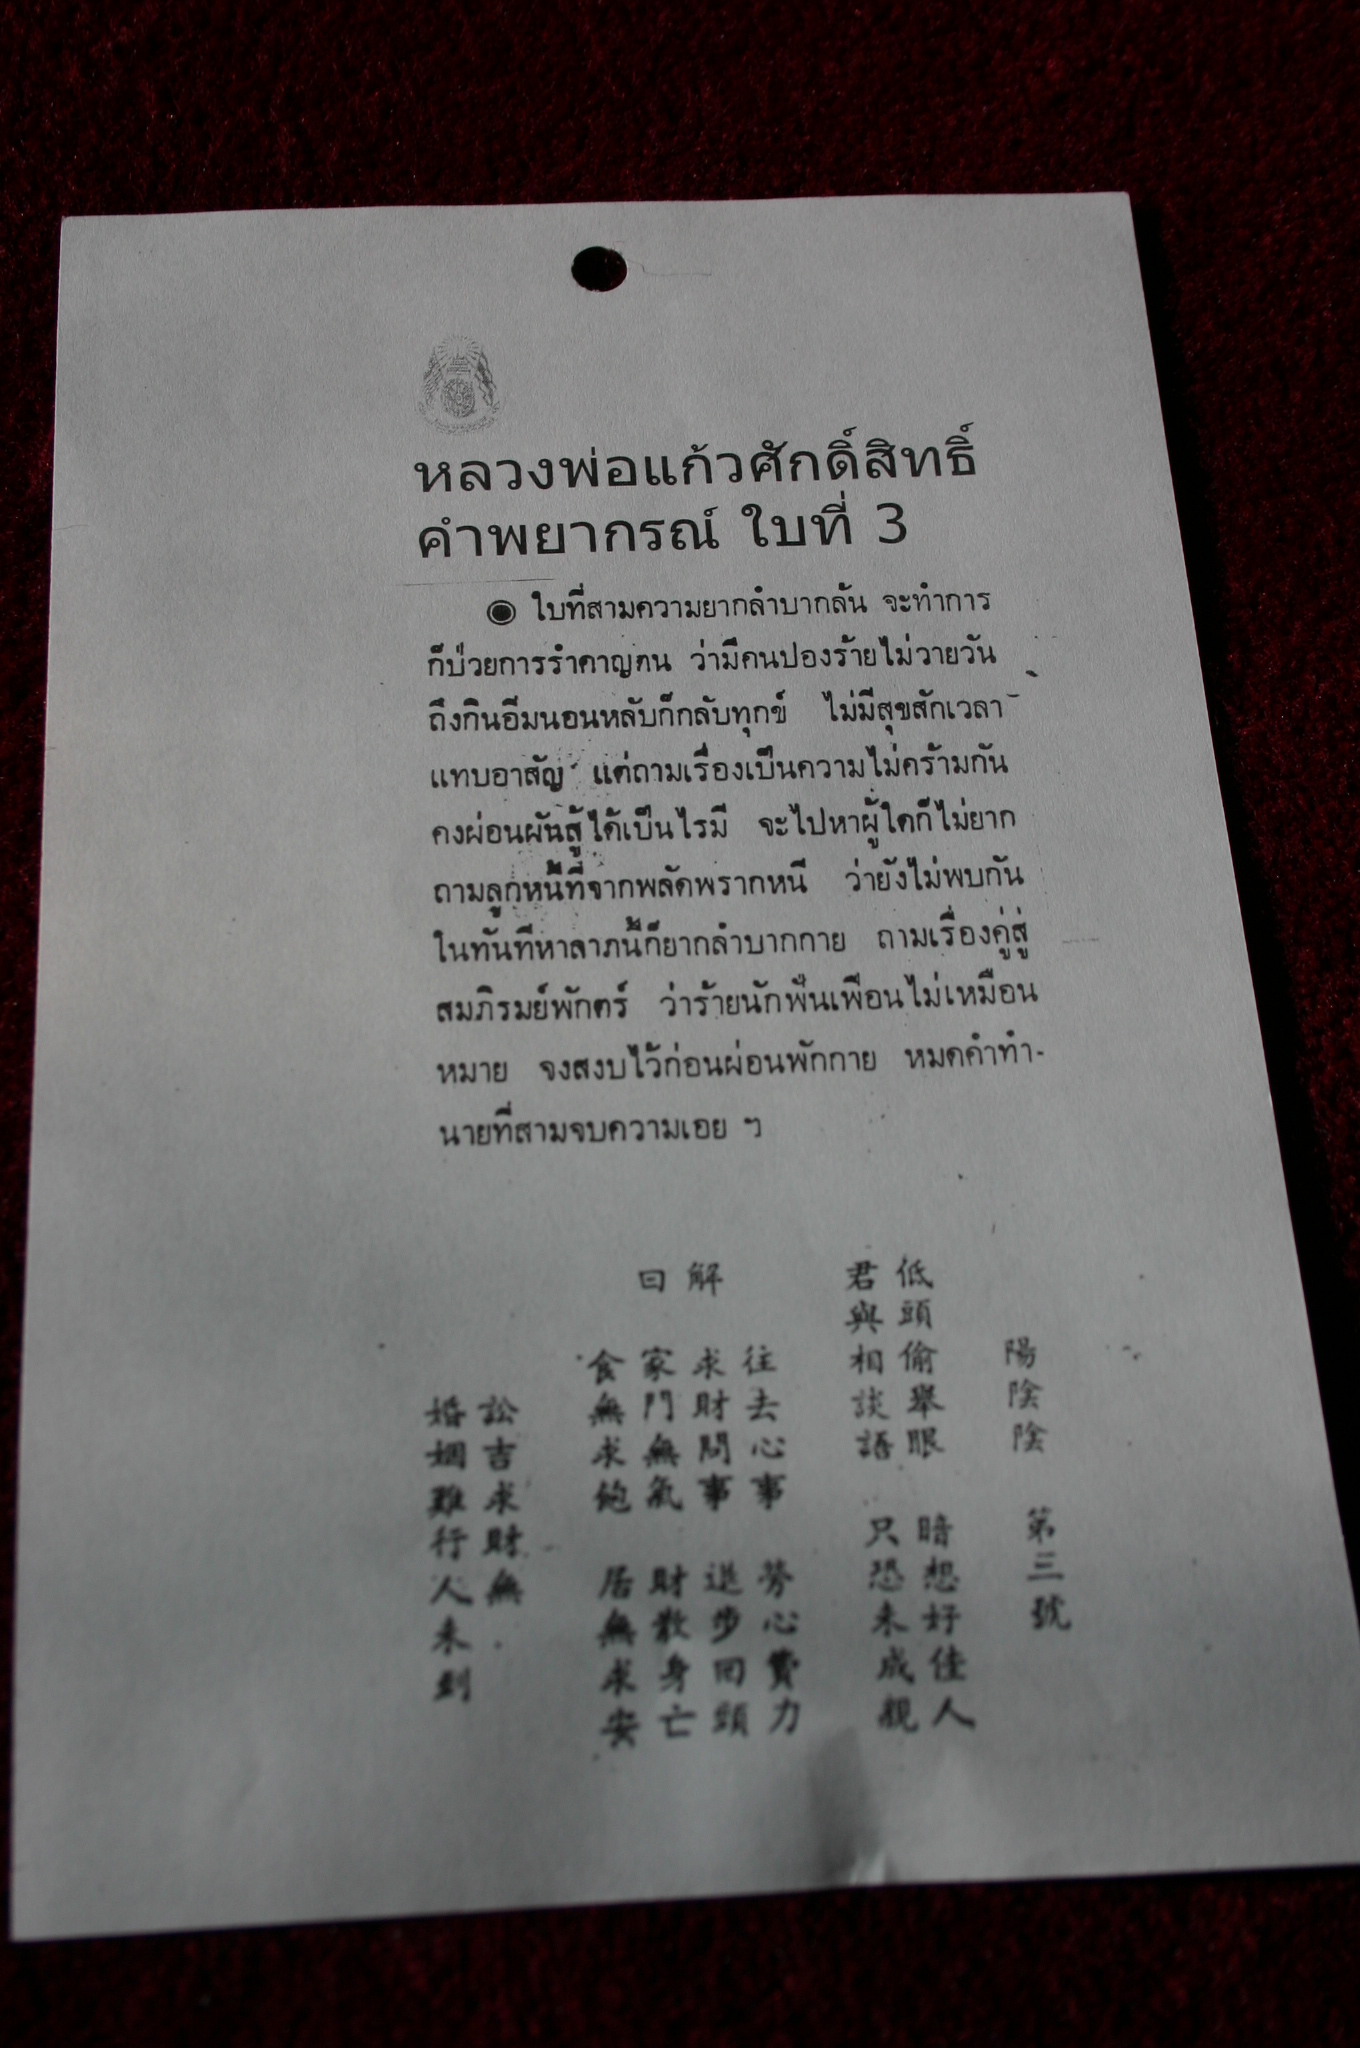 หลวงพ่อแก้วศักดิ์สิทธิ์
คำพยากรณ์ ใบที่ 3
ใบที่สามความยากลำบากล้น จะทำการ
ก็ป่วยการรำคาญคน ว่ามีคนปองร้ายไม่วายวัน
ถึงกินอิ่มนอนหลับก็กลับทุกข์ ไม่มีสุขสักเวลา
แทบอาสัญ แต่ถามเรื่องเป็นความไม่คร้ามกัน
คงผ่อนผันสู้ได้เป็นไรมี จะไปหาผู้ใดก็ไม่ยาก
ถามลูกหนี้ที่จากพลัดพรากหนี ว่ายังไม่พบกัน
ในทันทีหาลาภนี้ก็ยากลำบากกาย ถามเรื่องคู่สู่
สมภิรมย์พักตร์ ว่าร้ายนักฟั่นเฟือนไม่เหมือน
หมาย จงสงบไว้ก่อนผ่อนพักกาย หมดคำทำ-
นายที่สามจบความเอย ฯ
陽陰陰 第三號
低頭偷舉眼 暗想好佳人
君與相談語 只恐未成親
解曰
往去心事 勞心費力
求財問事 退步回頭
家門無氣 財散身亡
食無求飽 居無求安
訟吉求財無
婚姻難行人未到